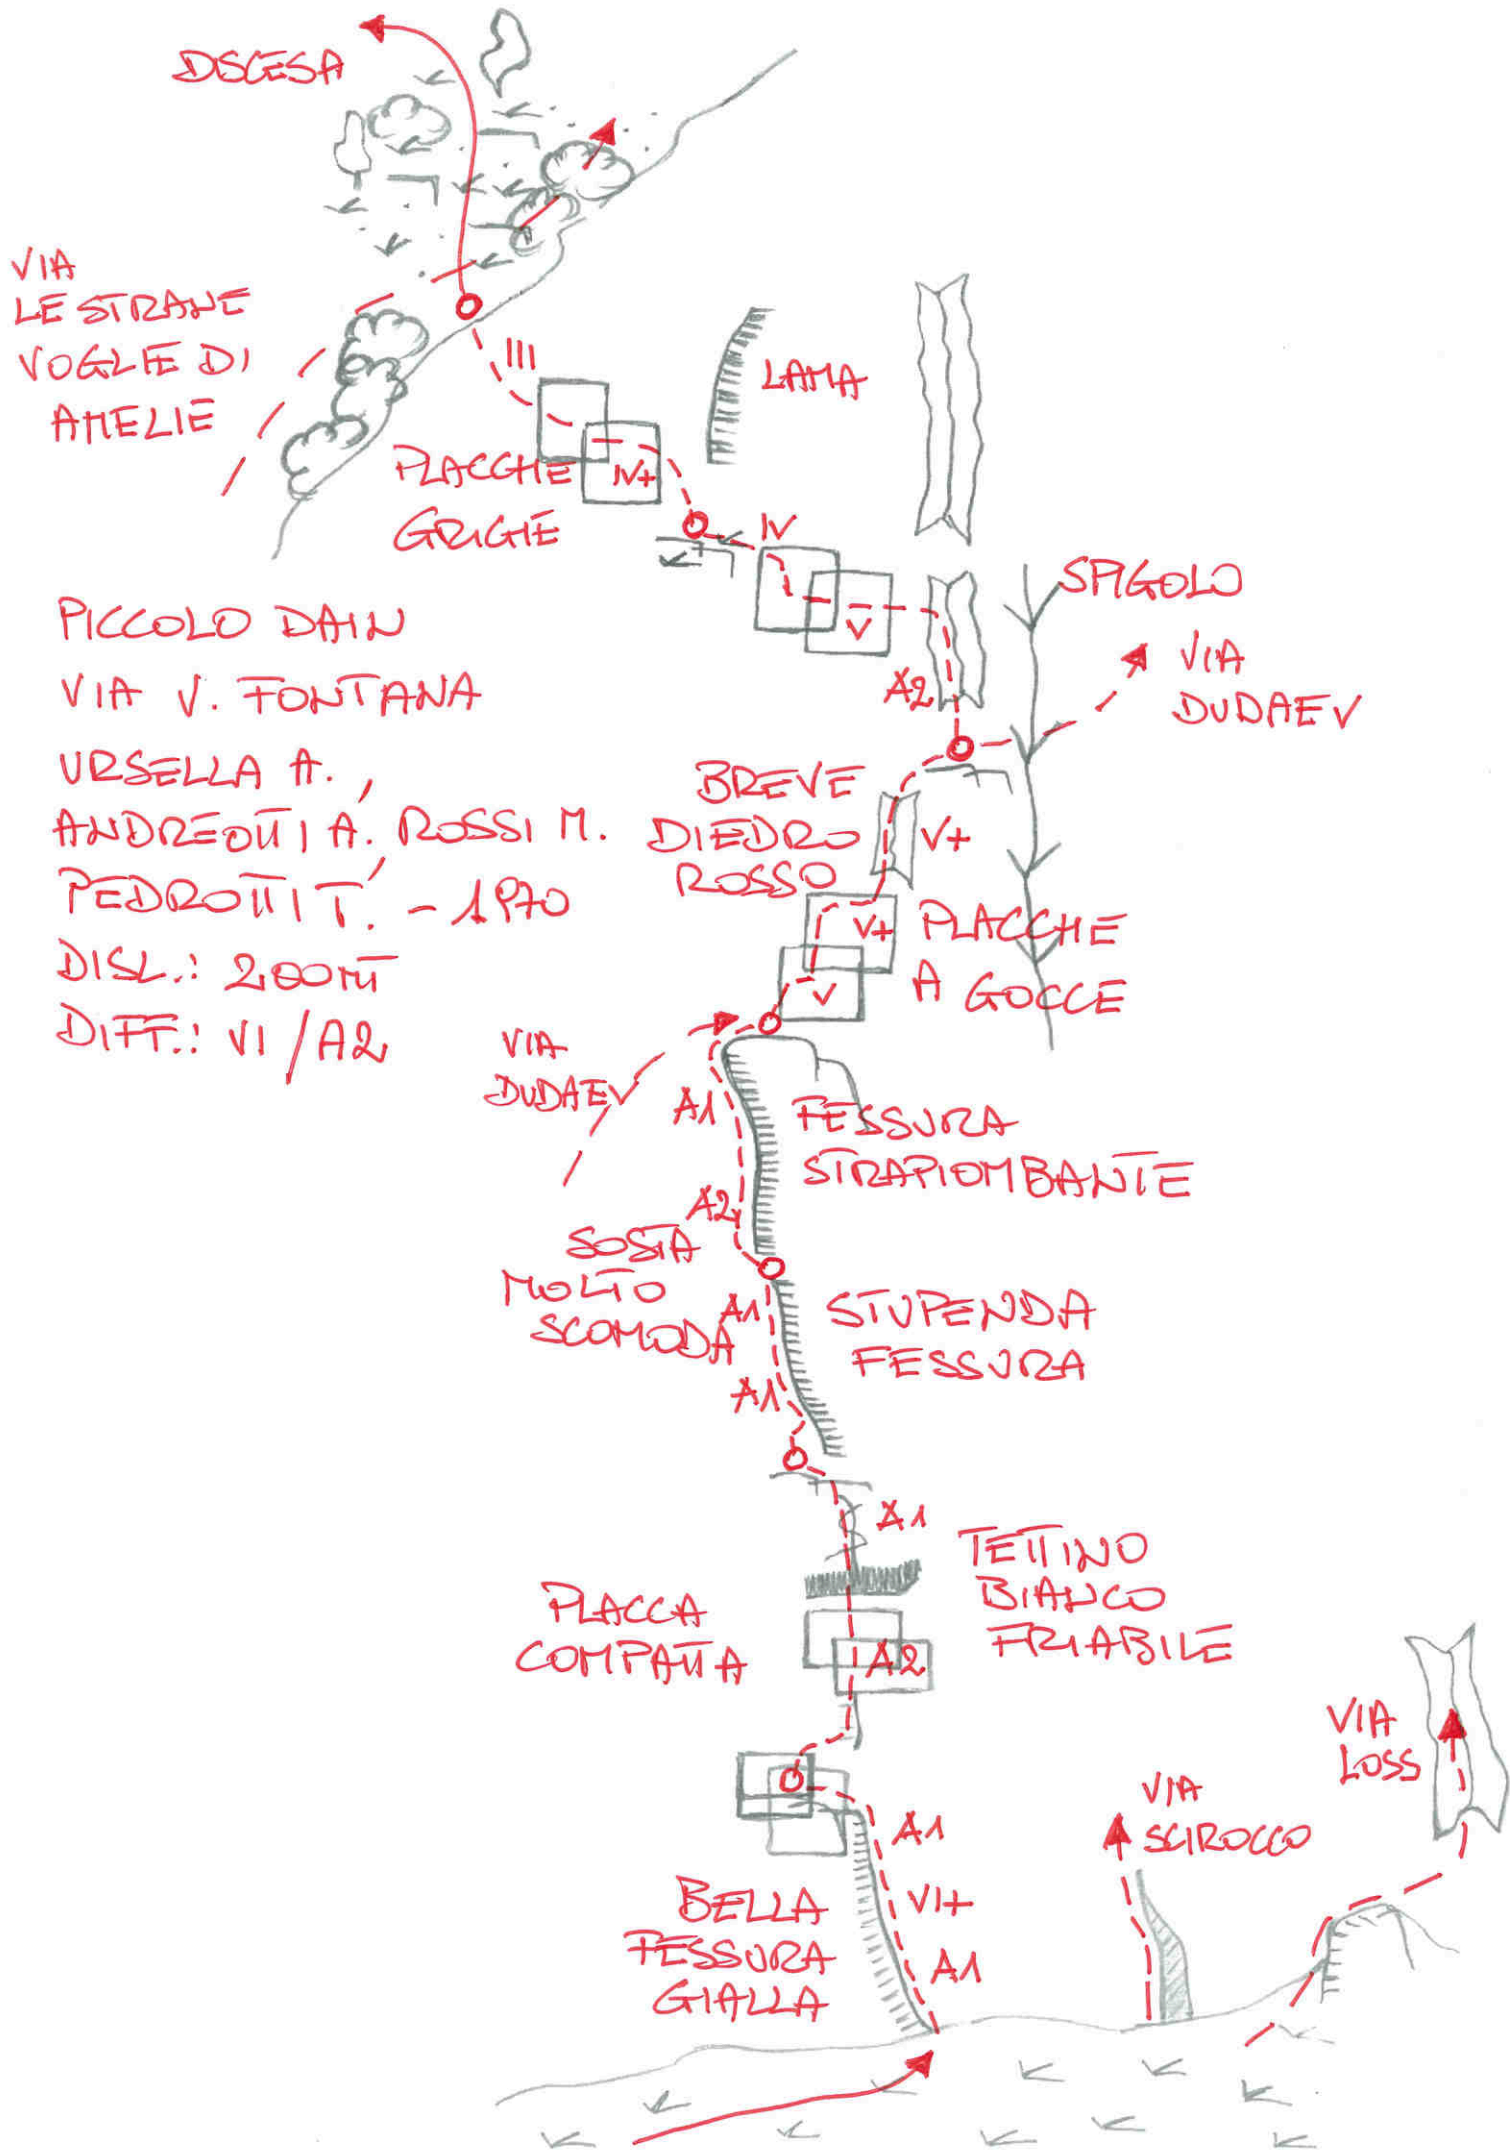 DISCESA
VIA
LE STRANE
VOGLIE DI
AMELIE
III
LAMA
PLACCHE
IV+
GRIGIE
IV
SPIGOLO
V
VIA
DUDAEV
A2
PICCOLO DAIN
VIA V. FONTANA
URSELLA A.,
ANDREOTTI A., ROSSI M.
PEDROTTI T. - 1970
DISL.: 200m
DIFF.: VI / A2
BREVE
DIEDRO
ROSSO
V+
V+
PLACCHE
A GOCCE
V
VIA
DUDAEV
A1
FESSURA
STRAPIOMBANTE
A2
SOSTA
MOLTO
SCOMODA
A1
STUPENDA
FESSURA
A1
A1
TETTINO
BIANCO
FRIABILE
PLACCA
COMPATTA
A2
VIA
LOSS
VIA
SCIROCCO
A1
VI+
A1
BELLA
FESSURA
GIALLA